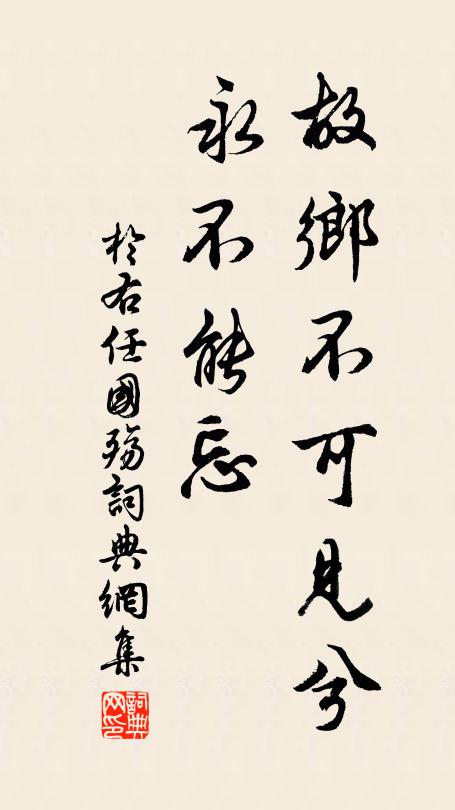 故鄉不可見兮
永不能忘
於右任國殤詞典網集
詞典網印